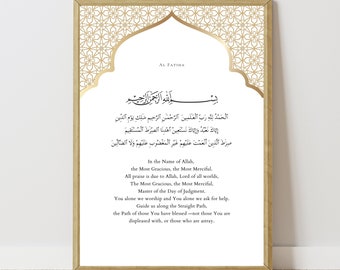 AL FATIHA
بِسْمِ اللَّهِ الرَّحْمَنِ الرَّحِيمِ
الْحَمْدُ لِلَّهِ رَبِّ الْعَالَمِينَ الرَّحْمَنِ الرَّحِيمِ مَالِكِ يَوْمِ الدِّينِ
إِيَّاكَ نَعْبُدُ وَإِيَّاكَ نَسْتَعِينُ اهْدِنَا الصِّرَاطَ الْمُسْتَقِيمَ
صِرَاطَ الَّذِينَ أَنْعَمْتَ عَلَيْهِمْ غَيْرِ الْمَغْضُوبِ عَلَيْهِمْ وَلَا الضَّالِّينَ
In the Name of Allah,
the Most Gracious, the Most Merciful.
All praise is due to Allah, Lord of all worlds,
The Most Gracious, the Most Merciful.
Master of the Day of Judgment.
You alone we worship and You alone we ask for help.
Guide us along the Straight Path,
the Path of those You have blessed —not those You are
displeased with, or those who are astray.